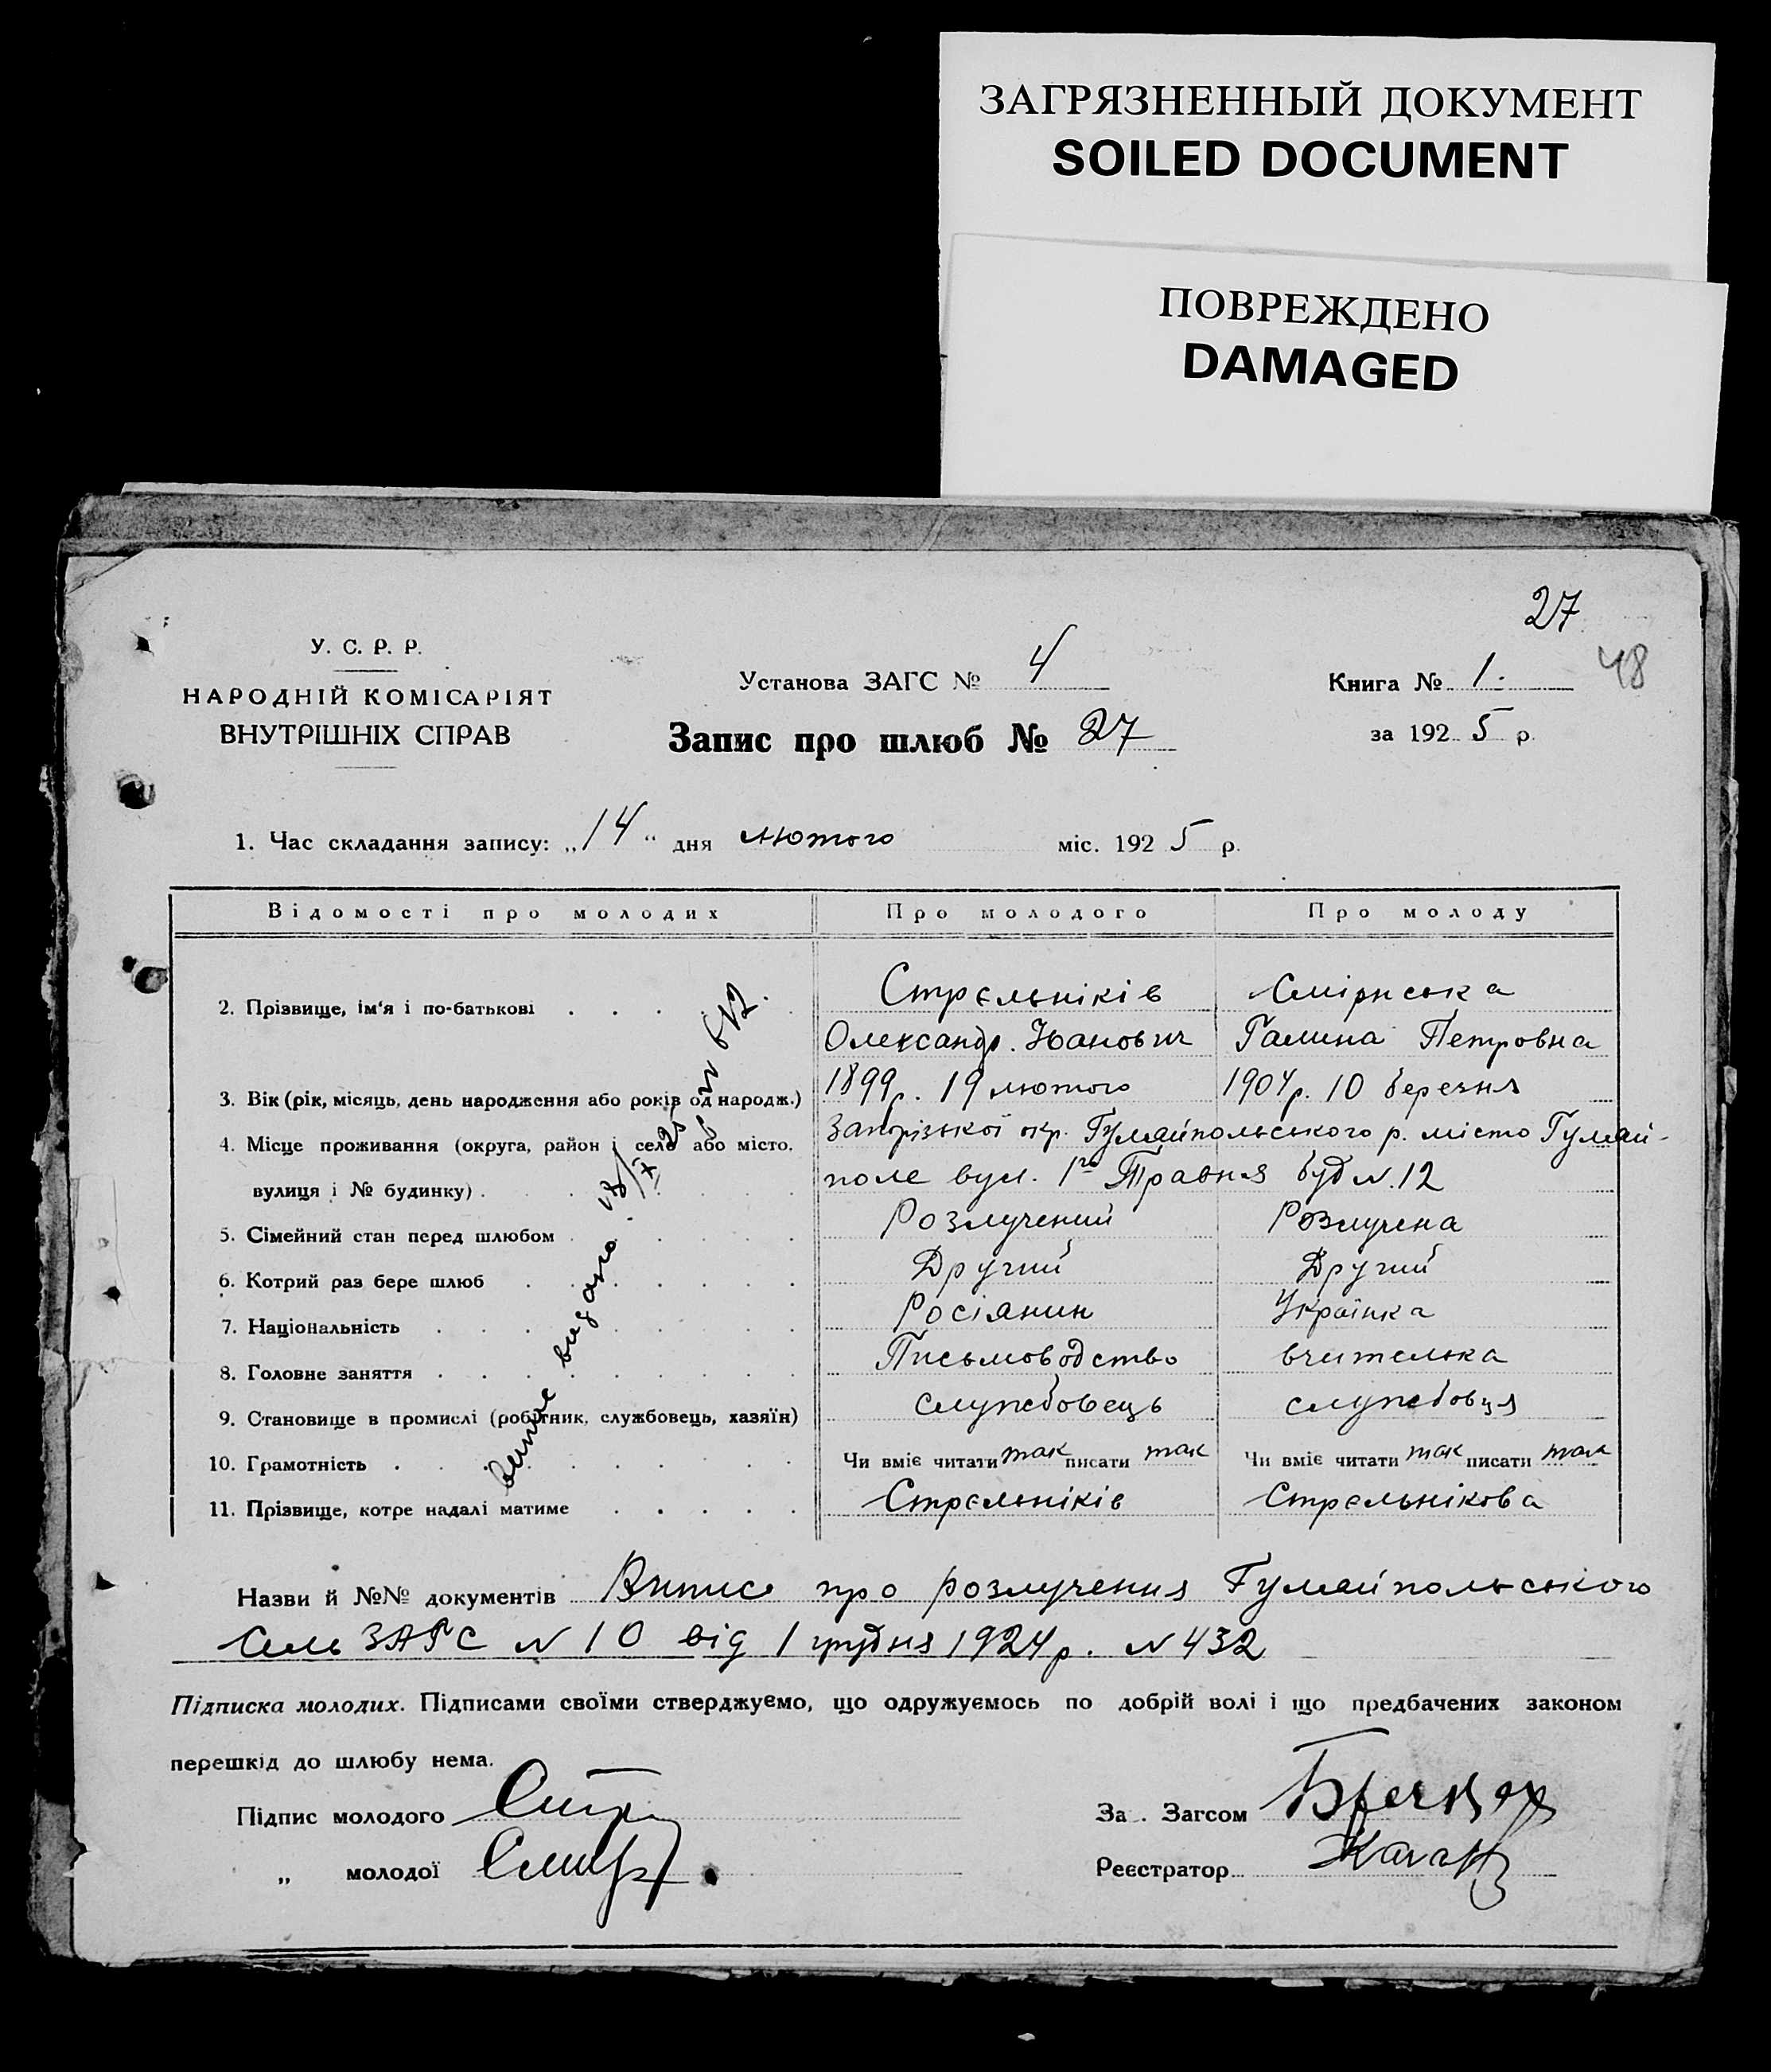 ЗАГРЯЗНЕННЫЙ ДОКУМЕНТ
SOILED DOCUMENT
ПОВРЕЖДЕНО
DAMAGED
27
48
У. С. Р. Р.
НАРОДНІЙ КОМІСАРІЯТ
ВНУТРІШНІХ СПРАВ
Установа ЗАГС № 4
Запис про шлюб № 27
Книга № 1.
за 1925 р.
1. Час складання запису: „14“ дня лютого міс. 1925 р.
Відомості про молодих Про молодого Про молоду
2. Прізвище, ім‘я і по-батькові Стрєльніків Смірнська
Олександр. Іванович Галина Петровна
3. Вік (рік, місяць, день народження або років од народж.) 1899 р. 19 лютого 1904 р. 10 березня
4. Місце проживання (округа, район і село або місто. Запорізької окр. Гуляйпольського р. місто Гуляй-
вулиця і № будинку) поле вул. 1го Травня буд N. 12
5. Сімейний стан перед шлюбом Розлучений Розлучена
6. Котрий раз бере шлюб Другий Другий
7. Національність Росіянин Українка
8. Головне заняття Письмоводство вчителька
9. Становище в промислі (робітник, службовець, хазяїн) службовець службовця
10. Грамотність Чи вміє читати так писати так Чи вміє читати так писати так
11. Прізвище, котре надалі матиме Стрєльніків Стрєльнікова
Випис видано 18/7
Назви й №№ документів Випис про розлучення Гуляйпольського
Сель ЗАГС N 10 від 1 грудня 1924 р. N 432
Підписка молодих. Підписами своїми стверджуємо, що одружуємось по добрій волі і що предбачених законом
перешкід до шлюбу нема.
Підпис молодого
За . Загсом
„ молодої
Реєстратор